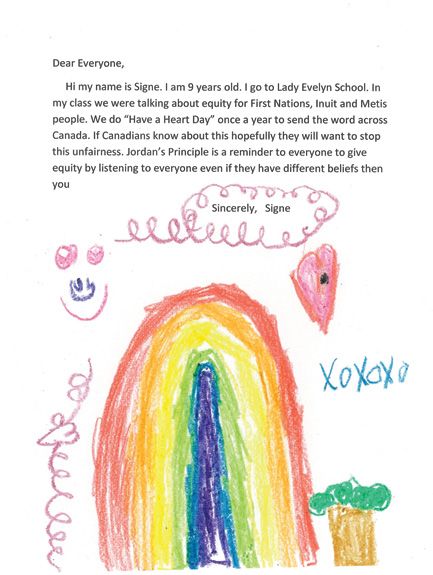 Dear Everyone,
Hi my name is Signe. I am 9 years old. I go to Lady Evelyn School. In
my class we were talking about equity for First Nations, Inuit and Metis
people. We do “Have a Heart Day” once a year to send the word across
Canada. If Canadians know about this hopefully they will want to stop
this unfairness. Jordan’s Principle is a reminder to everyone to give
equity by listening to everyone even if they have different beliefs then
you
Sincerely, Signe
XOXOXO